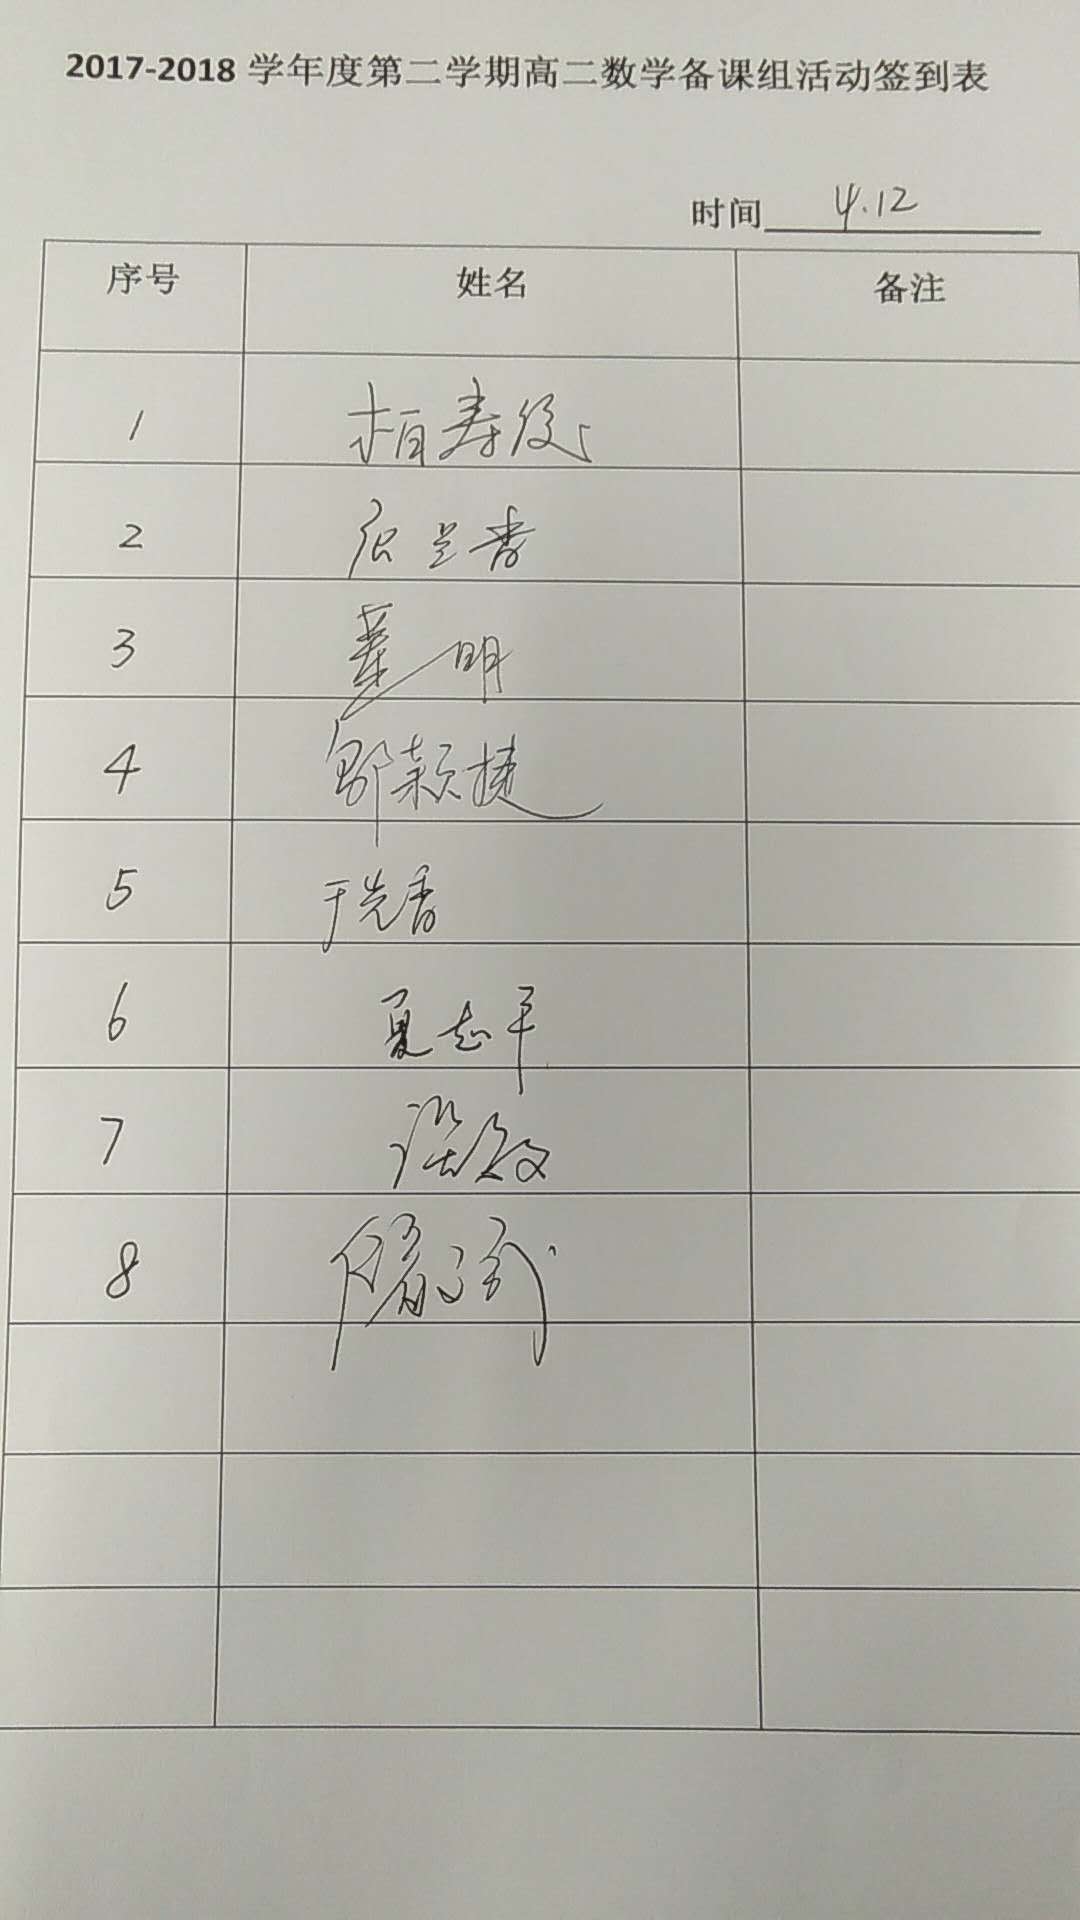 2017-2018 学年度第二学期高二数学备课组活动签到表
时间 4.12
序号 姓名 备注
1 柏寿俊
2
3 董明
4 邹颖捷
5 于先香
6 夏志平
7
8